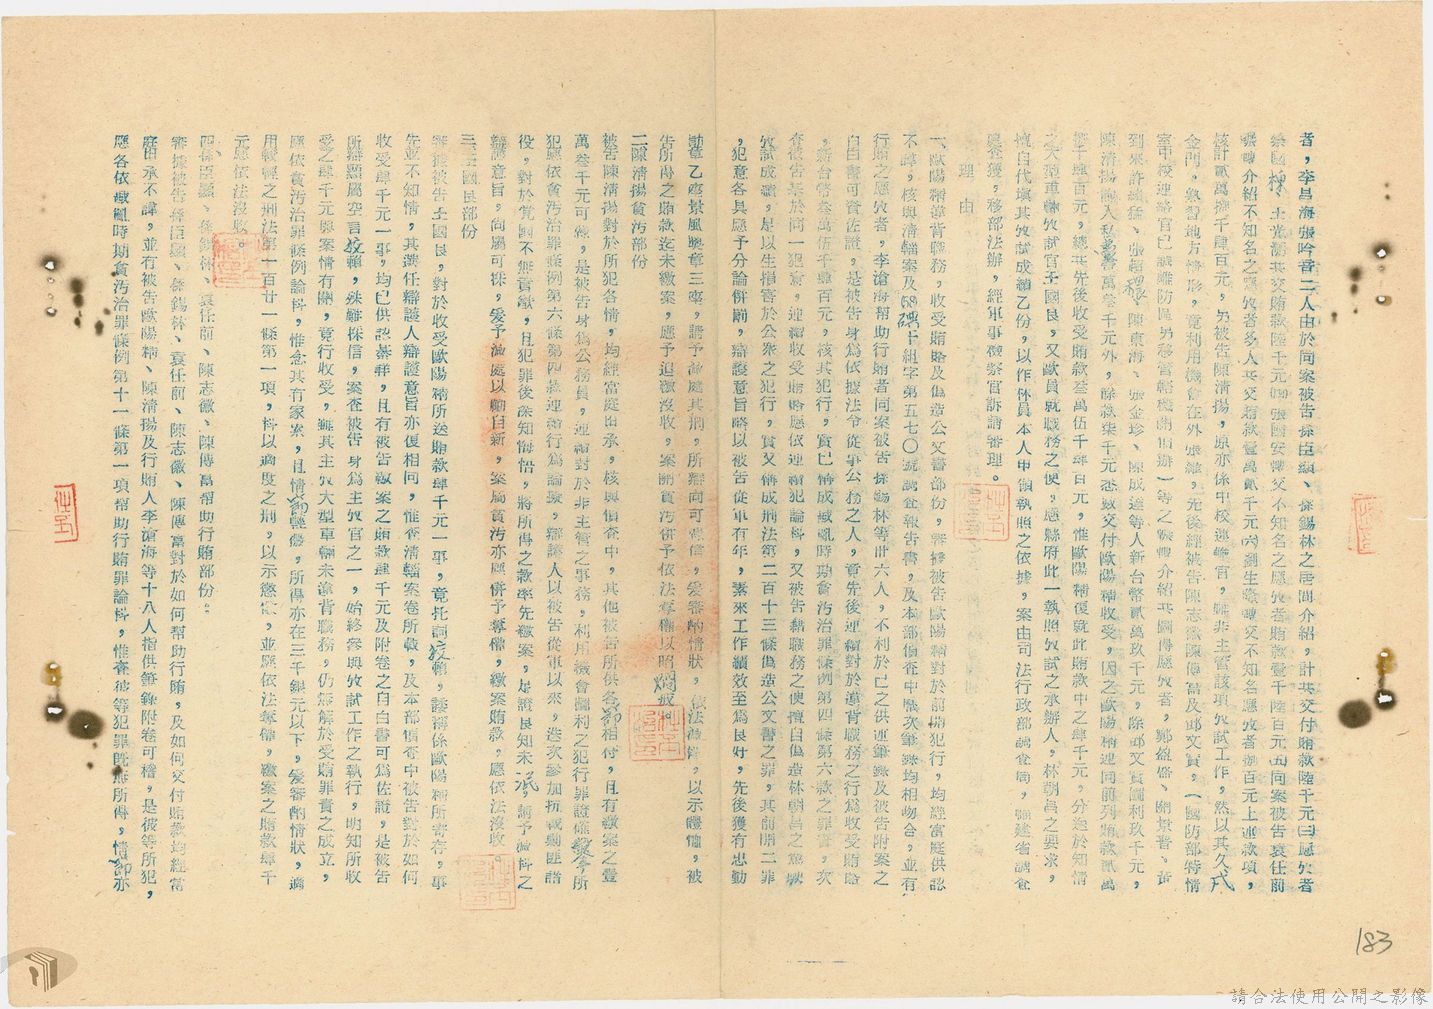 者，李昌海張吟香二人由於同案被告孫臣顯、孫錫林之居間介紹，計共交付賄款陸千元㈢應攷者
不知名之應攷者賄款壹千陸百元㈤同案被告袁任前
介紹不知名之應攷者多人共交賄款壹萬貳千元㈥劉生 轉交不知名應攷者捌百元上述款項，
核計貳萬 千肆百元，另被告陳清揚，原亦係中校連絡官，雖非主管該項攷試工作，然以其久戍
金門，熟習地方情形，竟利用機會在外張羅，先後經被告陳志徽陳傳富及邱文寶，（國防部特情
室中校連絡官已 離防區另移管轄機關偵辦）等之輾轉介紹共圖得應攷者，鄭盈盛、關景晋、黃
到來許績猛、張 穆、陳東海、張金珍、陳成達等人新台幣貳萬玖千元，除邱文寶圖利玖千元，
陳清揚 人私 萬叁千元外，餘款柒千元悉數交付歐陽 收受，因之歐陽 連同前列賄款貳萬
捌千肆百元，總共先後收受賄款叁萬伍千肆百元，惟歐陽 復就此賄款中之肆千元，分送於知情
之大型車輛攷試官王國民，又歐員就職務之便，應縣府此一執照攷試之承辦人，林朝昌之要求，
擅自代填其攷試成績乙份，以作林員本人申領執照之依據，案由司法行政部調查局，福建省調查
處查獲，移部法辦，經軍事檢察官訴請審理。
理由
一、歐陽 違背職務，收受賄賂及偽造公文書部份，審據被告歐陽 對於前開犯行，均經當庭供認
不諱，核與清輻案及 組字第五七〇號調查報告書，及本部偵查中歷次筆錄均相吻合，並有
行賄之應攷者，李滄海幫助行賄者同案被告孫錫林等卅六人，不利於己之供述筆錄及被告附案之
自白書可資佐證，是被告身為依據法令從事公務之人，竟先後連續對於違背職務之行為收受賄賂
，新台幣叁萬伍千肆百元，核其犯行，實已構成戡亂時期貪污治罪條例第四條第六款之罪責，次
查被告基於同一犯意，連續收受賄賂應依連續犯論科，又被告藉職務之便擅自偽造林朝昌之駕駛
攷試成績，足以生損害於公衆之犯行，實又構成刑法第二百十三條偽造公文書之罪，其前開二罪
，犯意各具應予分論併罰，辯護意旨略以被告從軍有年，素來工作績效至為良好，先後獲有忠勤
勳章乙座景風 章三座，請予減處其刑，所辯尚可憑信，爰審酌情狀，依法減 ，以示體恤，被
告所得之賄款迄未繳案，應予追繳沒收，案關貪污併予依法褫權以昭炯戒。
二、陳清揚貪污部份
被告陳清揚對於所犯各情，均經當庭坦承，核與偵查中，其他被告所供各節相符，且有繳案之壹
萬叁千元可稽，是被告身為公務員，連續對於非主管之事務，利用機會圖利之犯行罪證確鑿，所
犯應依貪污治罪條例第六條第四款連續行為論擬，辯護人以被告從軍以來，迭次參加抗戰勦匪諸
役，對於黨國不無貢獻，且犯罪後深知悔悟，將所得之款率先繳案，足證良知未泯，請予減科之
辯護意旨，尚屬可採，爰予減處以勵自新，案屬貪污亦應併予褫權，繳案賄款，應依法沒收。
三、王國民部份
審據被告王國民，對於收受歐陽 所送賄款肆千元一事，竟托詞狡賴，諉稱係歐陽 所寄存，事
先並不知情，其選任辯護人辯護意旨亦復相同，惟查清輻案卷所載，及本部偵查中被告對於如何
收受肆千元一事，均已供認綦詳，且有被告繳案之賄款肆千元及附卷之自白書可為佐證，是被告
所辯顯屬空言狡賴，殊難採信，案查被告身為主攷官之一，始終參與攷試工作之執行，明知所收
受之肆千元與案情有關，竟行收受，雖其主攷大型車輛未違背職務，仍無解於受賄罪責之成立，
應依貪污治罪條例論科，惟念其有家累，且情節輕微，所得亦在三千銀元以下，爰審酌情狀，適
用較輕之刑法第一百廿一條第一項，科以適度之刑，以示懲儆，並應依法褫權，繳案之賄款肆千
元應依法沒收。
四、孫臣顯、孫錫林、袁任前、陳志徽、陳傳富幫助行賄部份。
審據被告孫臣顯、孫錫林、袁任前、陳志徽、陳傳富對於如何幫助行賄，及如何交付賄款均經當
庭坦承不諱，並有被告歐陽 、陳清揚及行賄人李滄海等十八人指供筆錄附卷可稽，是彼等所犯，
應各依戡亂時期貪污治罪條例第十一條第一項幫助行賄罪論科，惟查彼等犯罪既無所得，情節亦
183
請合法使用公開之影像